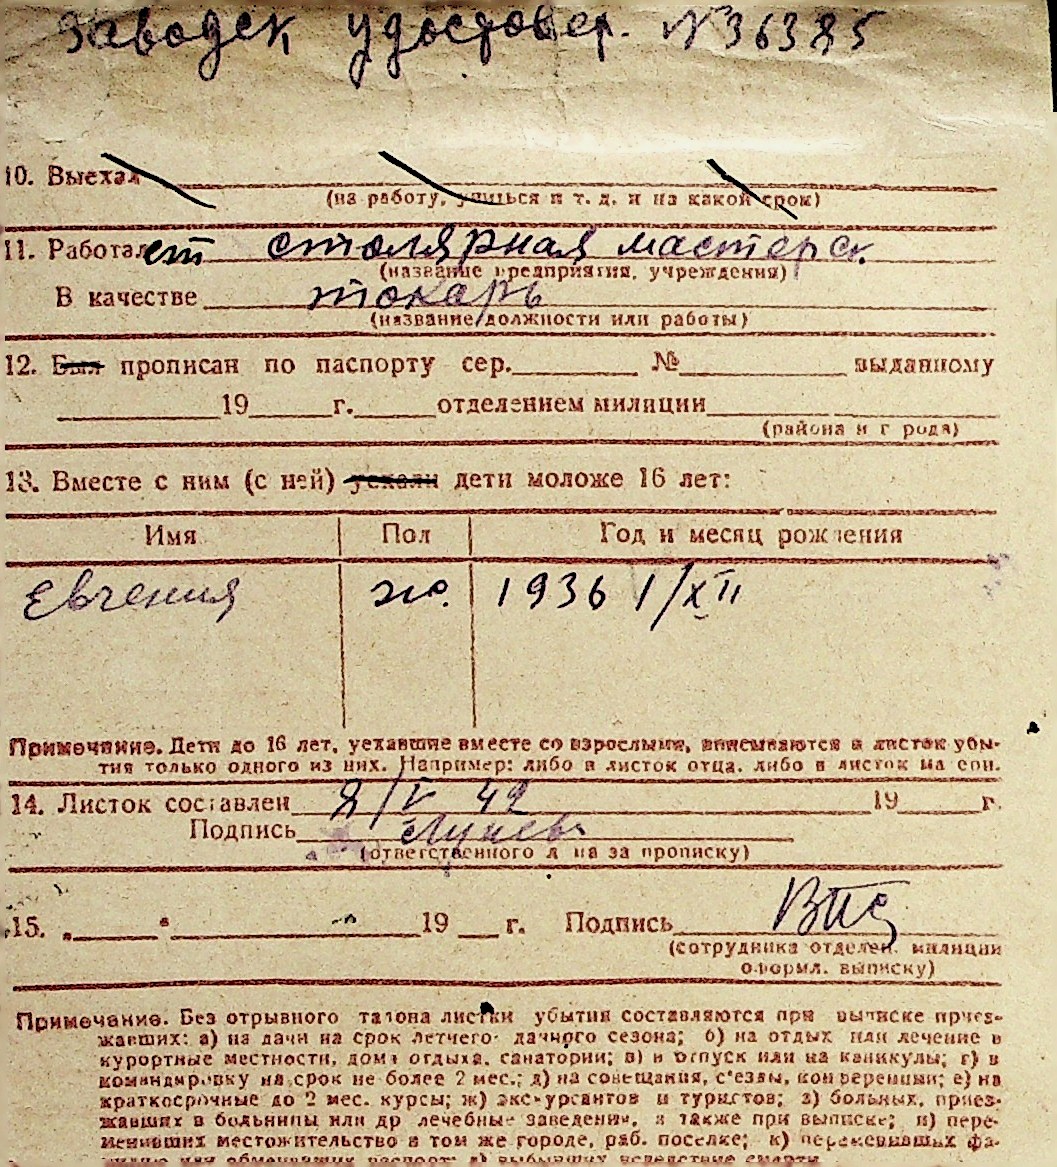 Заводск удостовер. № 36385
10. Выехал
(на работу, учиться и т. д. и на какой срок)
11. Работает столярная мастерск.
(название предприятия, учреждения)
В качестве токарь
(название должности или работы)
12. Был прописан по паспорту сер. № выданному
19 г. отделением милиции
(района и города)
13. Вместе с ним (с ней) уехали дети моложе 16 лет:
Имя Пол Год и месяц рождения
Евгения ж. 1936 1/XII
Примечание. Дети до 16 лет, уехавшие вместе со взрослыми, вписываются в листок убы-
тия только одного из них. Например: либо в листок отца, либо в листок матери.
14. Листок составлен /V 42 19 г.
Подпись
(ответственного лица за прописку)
15. „ “ 19 г. Подпись
(сотрудника отделен. милиции
оформл. выписку)
Примечание. Без отрывного талона листки убытия составляются при выписке приез-
жавших: а) на дачи на срок летнего дачного сезона; б) на отдых или лечение в
курортные местности, дома отдыха, санатории; в) в отпуск или на каникулы; г) в
командировку на срок не более 2 мес.; д) на совещания, с'езды, конференции; е) на
краткосрочные до 2 мес. курсы; ж) экскурсантов и туристов; з) больных, приез-
жавших в больницы или др лечебные заведения, а также при выписке; и) пере-
менивших местожительство в том же городе, раб. поселке; к) переменивших фа-
милию или обменявших паспорт; л) выбывших вследствие смерти